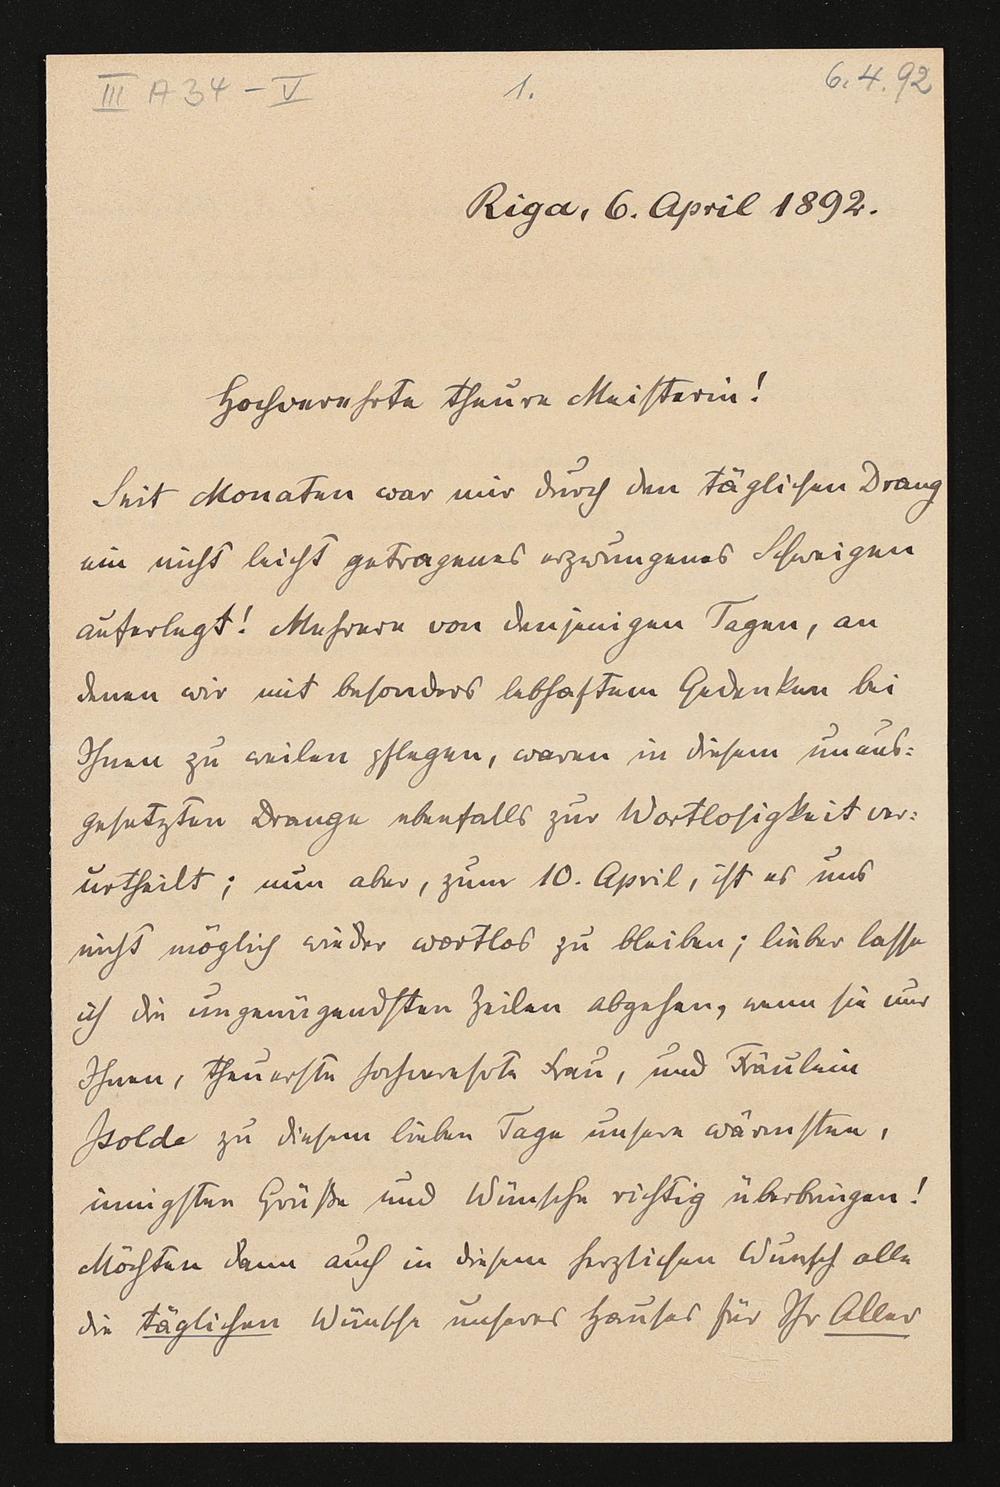 III A 34 - V
1.
6.4.92
Riga, 6. April 1892.
Hochverehrte theure Meisterin!
Seit Monaten war mir durch den täglichen Drang
ein nicht leicht getragenes erzwungenes Schweigen
auferlegt! Mehrere von denjenigen Tagen, an
denen wir mit besonders lebhaftem Gedenken bei
Ihnen zu weilen pflegen, waren in diesem unaus-
gesetzten Drange ebenfalls zur Wortlosigkeit ver-
urtheilt; nun aber, zum 10. April, ist es uns
nicht möglich wieder wortlos zu bleiben; lieber lasse
ich die ungenügendsten Zeilen abgehen, wenn sie nur
Ihnen, theuerste hochverehrte Frau, und Fräulein
Isolde zu diesem lieben Tage unsere wärmsten,
innigsten Grüße und Wünsche richtig überbringen!
Möchten dann auch in diesem herzlichen Wunsch alle
die täglichen Wünsche unseres Hauses für Ihr Aller